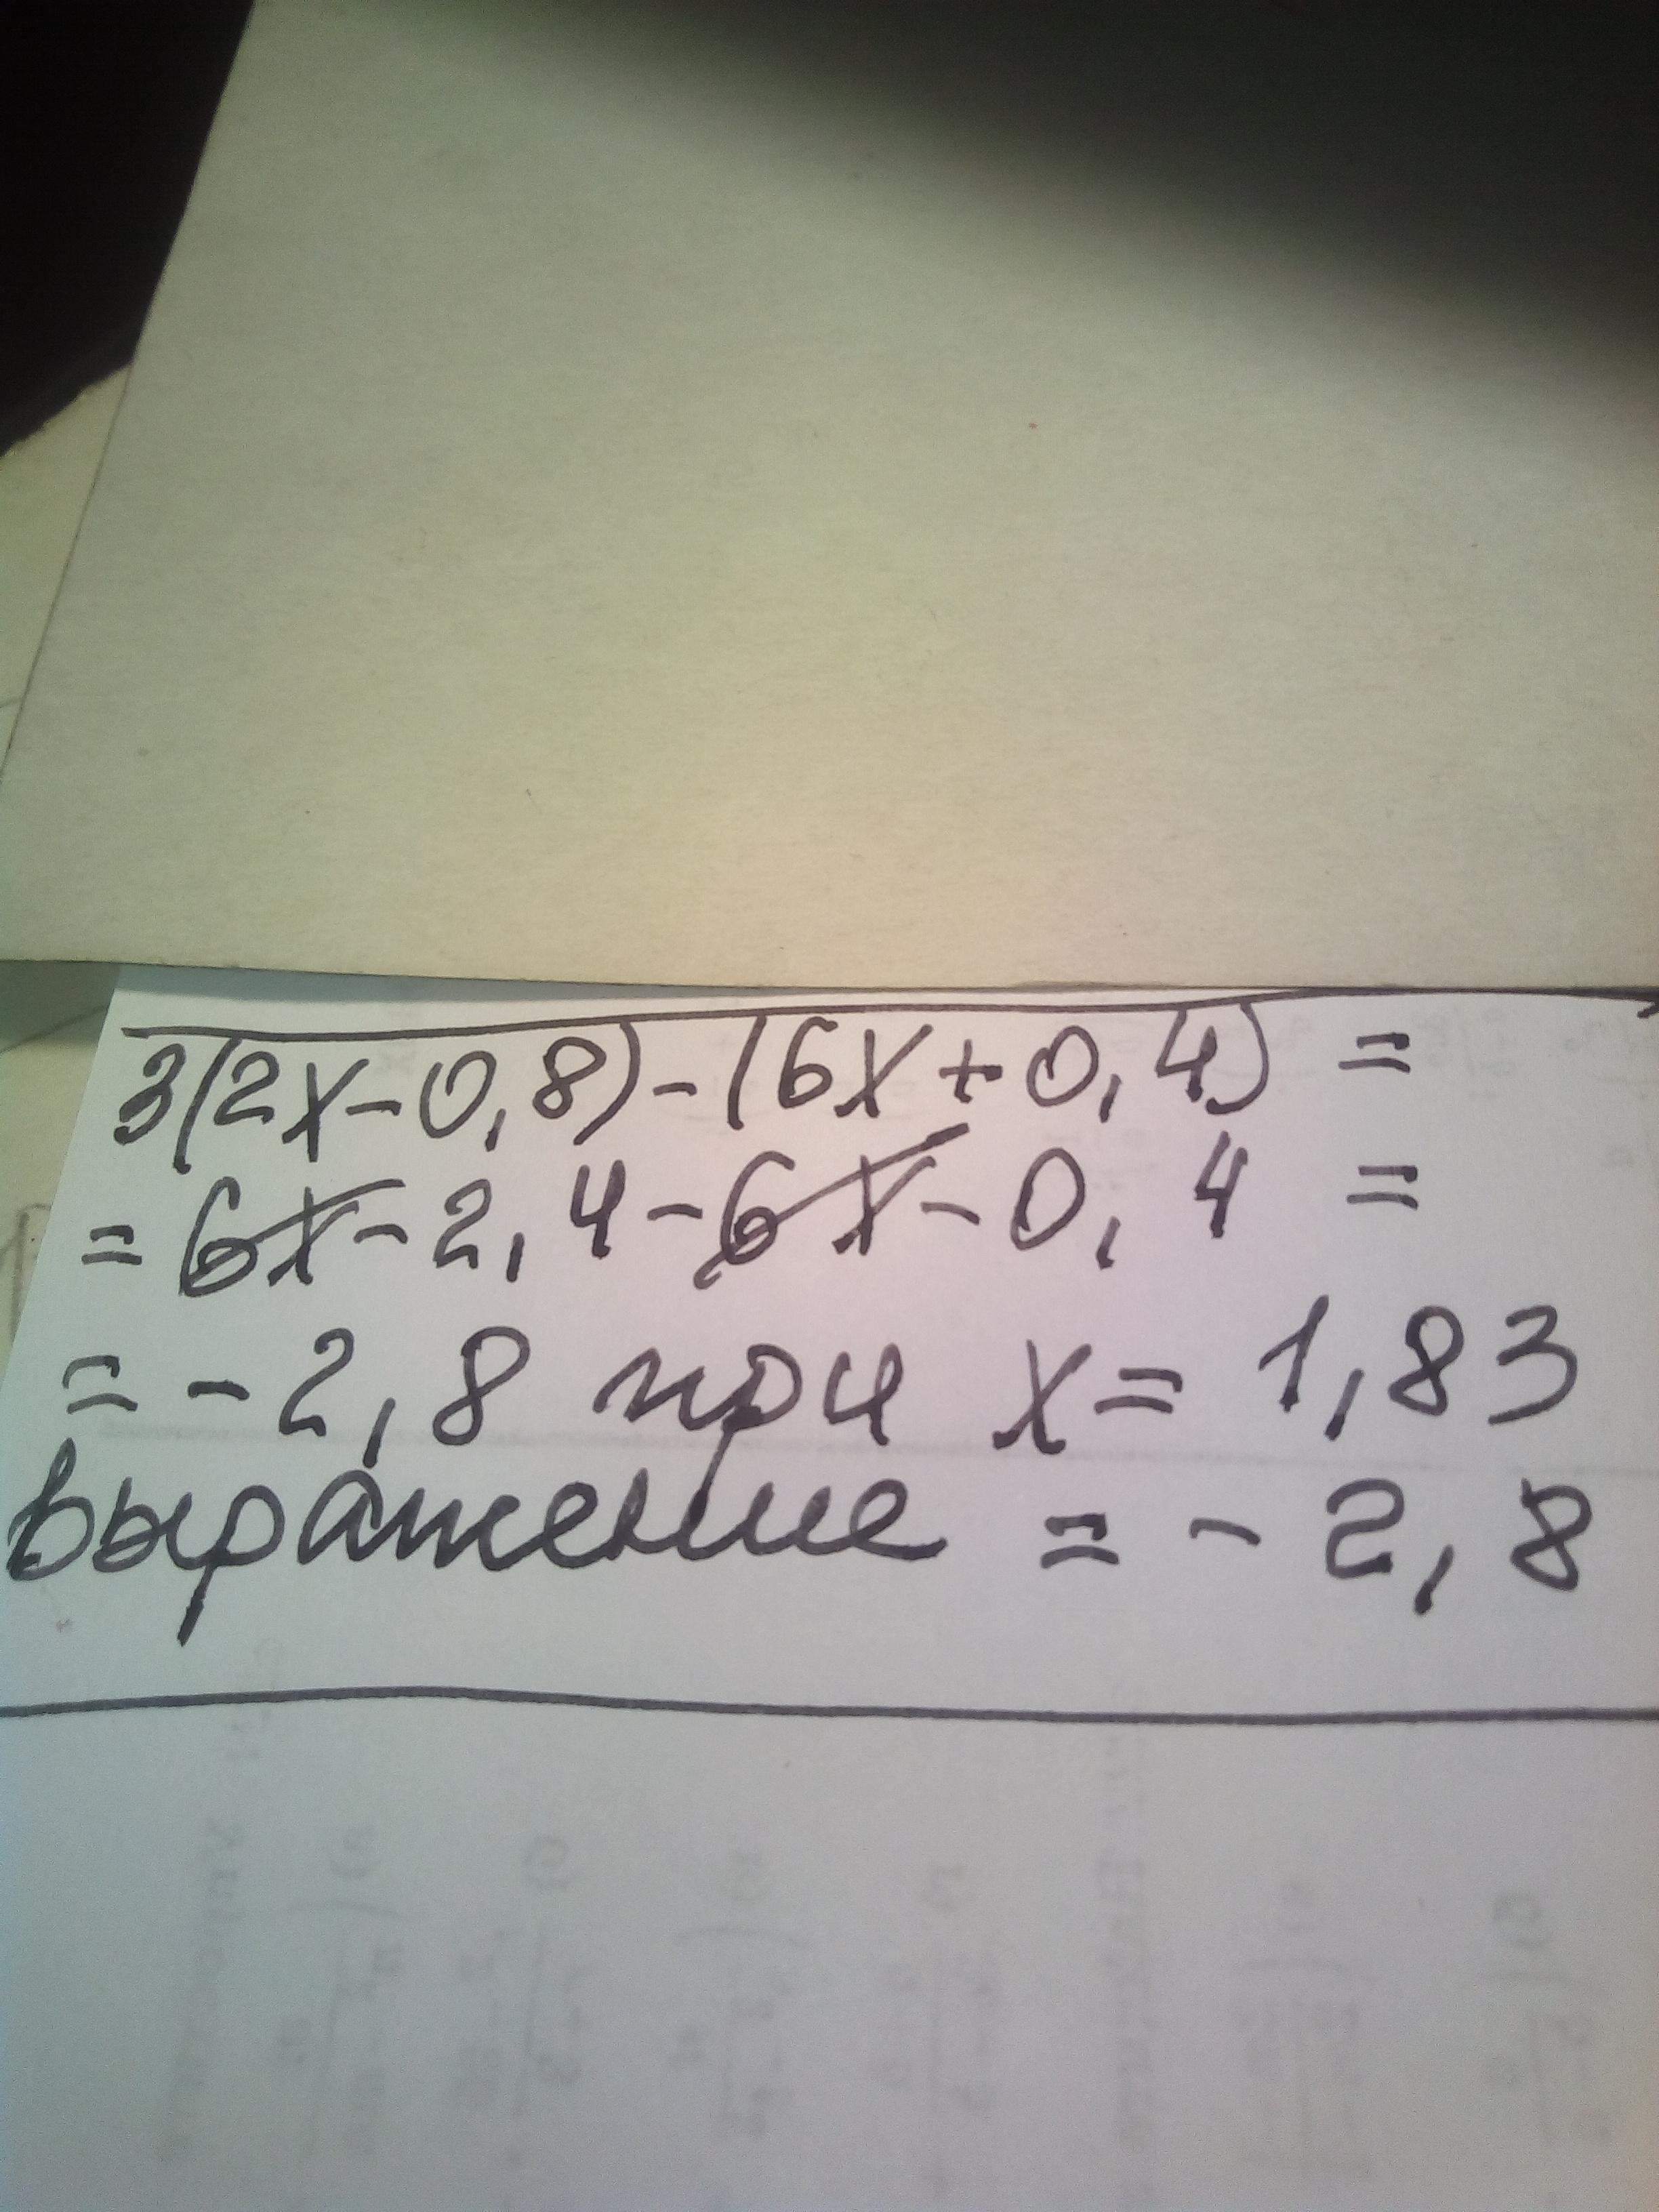 3(2х-0,8)-(6х+0,4)=
=6х-2,4-6х-0,4=
=-2,8 при х=1,83
выражение =-2,8